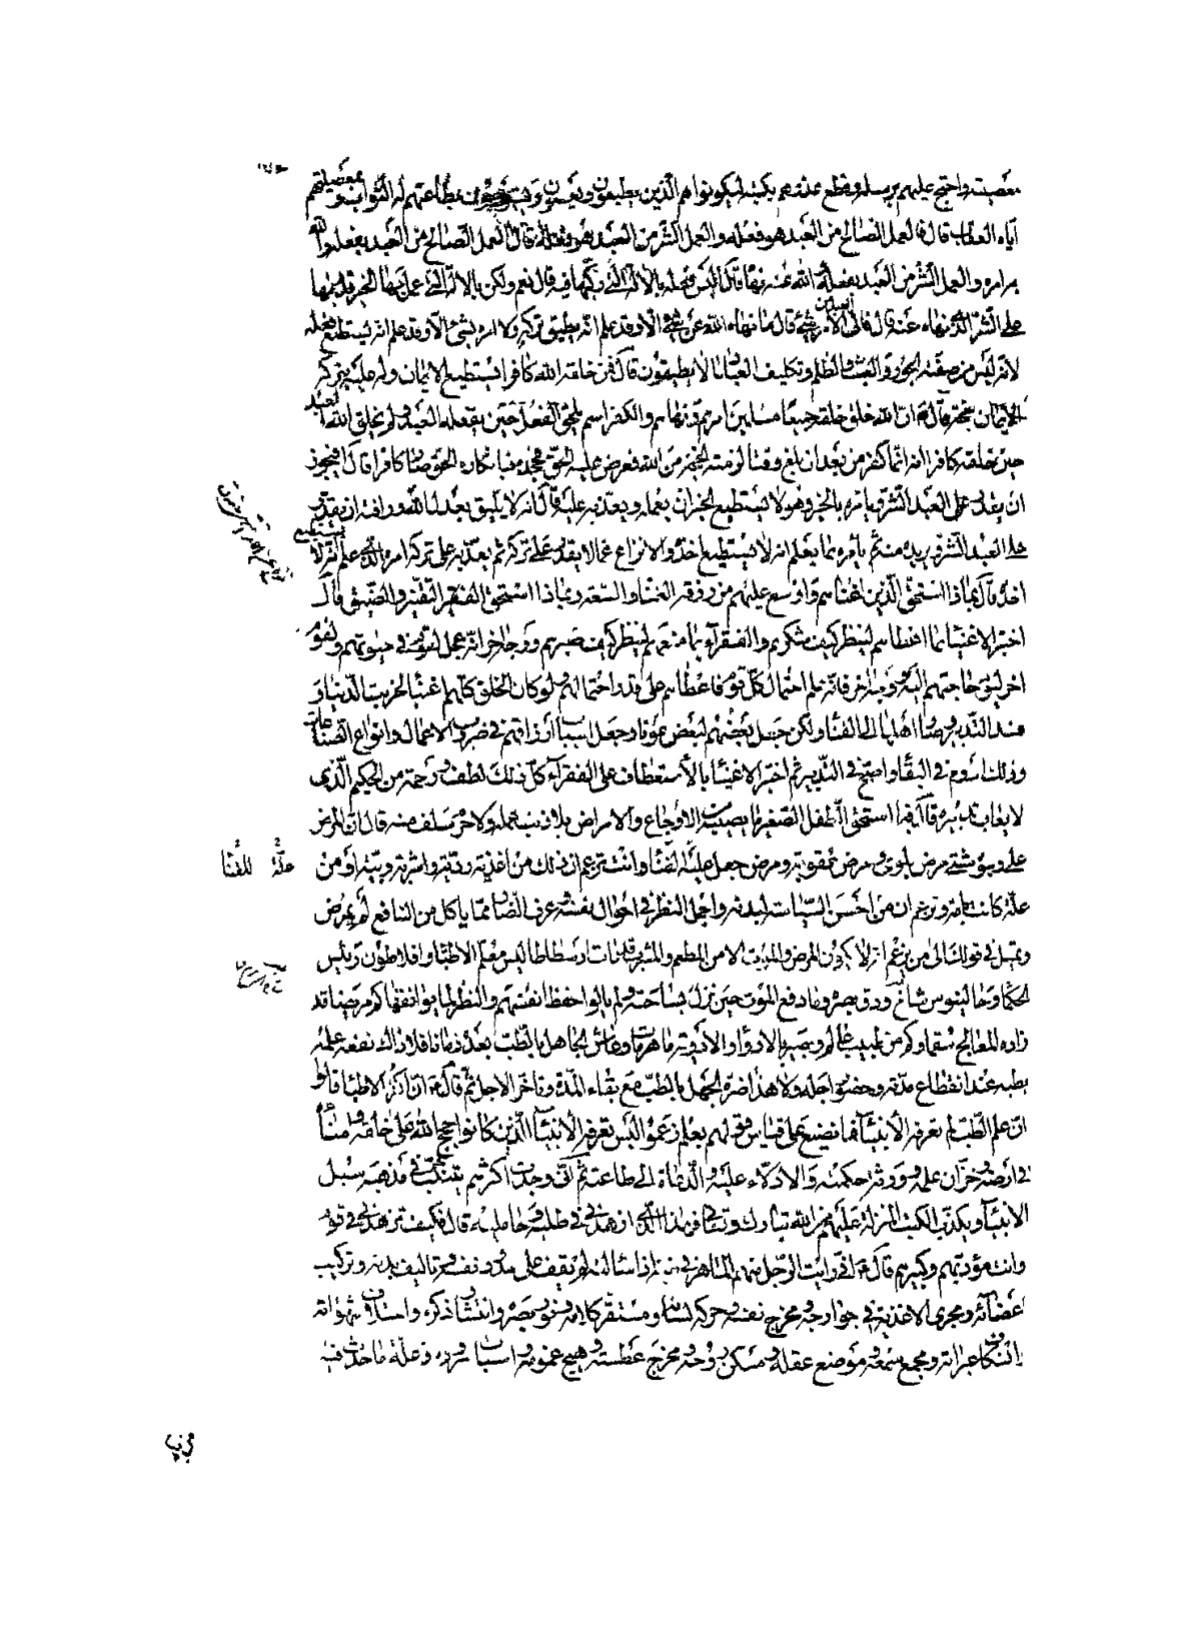 معصيته واحتج عليهم برسله وقطع عذرهم بكتبه ليكونوا هم الذين يطيعون ويعصون ويستوجبون بطاعتهم له الثواب وبمعصيتهم
اياه العقاب قال فالعمل الصالح من العبد هو فعله والعمل الشر من العبد هو فعله قال العمل الصالح من العبد بفعله والله
به امره والعمل الشر من العبد بفعله والله عنه نهاه قال اليس فعله بالالة التي ركبها فيه قال نعم ولكن بالالة التي عمل بها الخير قدر بها
على الشر الذي نهاه عنه قال فالى العبد من الامر شيء قال ما نهاه الله عن شيء الا وقد علم انه يطيق تركه ولا امره بشيء الا وقد علم انه يستطيع فعله
لانه ليس من صفته الجور والعبث والظلم وتكليف العباد ما لا يطيقون قال فمن خلقه الله كافرا يستطيع الايمان وله عليه بتركه
الايمان حجة قال ع ان الله خلق خلقه جميعا مسلمين امرهم ونهاهم والكفر اسم يلحق الفعل حين يفعله العبد ولم يخلق الله العبد
حين خلقه كافرا انه انما كفر من بعد ان بلغ وقتا لزمته الحجة من الله فعرض عليه الحق فجحده فبانكاره الحق صار كافرا قال فيجوز
ان يقدر على العبد الشر ويامره بالخير وهو لا يستطيع الخير ان يعمله ويعذبه عليه قال انه لا يليق بعدل الله ورافته ان يقدر
على العبد الشر ويريده منه ثم يامره بما يعلم انه لا يستطيع اخذه والانزاع عما لا يقدر على تركه ثم يعذبه على تركه امره الذي علم انه لا يستطيع
اخذه قال بماذا استحق الذين اغناهم واوسع عليهم من رزقه الغناء والسعة وبماذا استحق الفقير التقتير والضيق قال
اختبر الاغنياء بما اعطاهم لينظر كيف شكرهم والفقراء بما منعهم لينظر كيف صبرهم ووجه اخر انه عجل لقوم في حيوتهم ولقوم
اخر ليوم حاجتهم اليه ووجه اخر فانه علم احتمال كل قوم فاعطاهم على قدر احتمالهم ولو كان الخلق كلهم اغنياء لخربت الدنيا و
فسد التدبير وصار اهلها الى الفناء ولكن جعل بعضهم لبعض عونا وجعل اسباب ارزاقهم في ضروب الاعمال وانواع الصناعات
وذلك ادوم في البقاء واصح في التدبير ثم اختبر الاغنياء بالاستعطاف على الفقراء كل ذلك لطف ورحمة من الحكيم الذي
لا يعاب تدبيره قال فيما استحق الطفل الصغير ما يصيبه من الاوجاع والامراض بلا ذنب عمله ولا جرم سلف منه قال ان المرض
على وجوه شتى مرض بلوى ومرض عقوبة ومرض جعل عليه الفناء وانت تزعم ان ذلك من اغذية ردية واشربة وبية او من
علة كانت بامه وتزعم ان من احسن السياسة لبدنه واجمل النظر في احوال نفسه وعرف الضار مما ياكل من النافع لم يمرض
وتميل في قولك الى من يزعم انه لا يكون المرض والموت الا من المطعم والمشرب قد مات ارسطاطاليس معلم الاطباء وافلاطون رئيس
الحكماء وجالينوس شاخ ودق بصره وما دفع الموت حين نزل بساحته ولم يالوا حفظ انفسهم والنظر لما يوافقها كم مريضا قد
زاده المعالج سقما وكم من طبيب عالم وبصير بالادواء والادوية ماهر مات وعاش الجاهل بالطب بعده زمانا فلا ذاك نفعه علمه
بطبه عند انقطاع مدته وحضور اجله ولا هذا ضره الجهل بالطب مع بقاء المدة وتاخر الاجل ثم قال ع ان اكثر الاطباء قالوا
ان علم الطب لم تعرفه الانبياء فما نصنع على قياس قولهم بعلم زعموا ليس تعرفه الانبياء الذين كانوا حجج الله على خلقه وامناءه
في ارضه وخزان علمه وورثة حكمته والادلاء عليه والدعاة الى طاعته ثم اني وجدت اكثرهم يتنكب في مذهبه سبل
الانبياء ويكذب الكتب المنزلة عليهم من الله تبارك وتعالى فهذا الذي ازهدني في طلبه وحامليه قال فكيف تزهد في قوم
وانت مؤدبهم وكبيرهم قال ع اني رايت الرجل منهم الماهر في طبه اذا سالته لم يقف على حدود نفسه وتاليف بدنه وتركيب
اعضائه ومجرى الاغذية في جوارحه ومخرج نفسه وحركة لسانه ومستقر كلامه ونور بصره وانتشار ذكره واختلاف شهواته
وانسكاب عبراته ومجمع سمعه وموضع عقله ومسكن روحه ومخرج عطسته وهيج غمومه واسباب سروره وعلة ما حدث فيه
علة للفناء